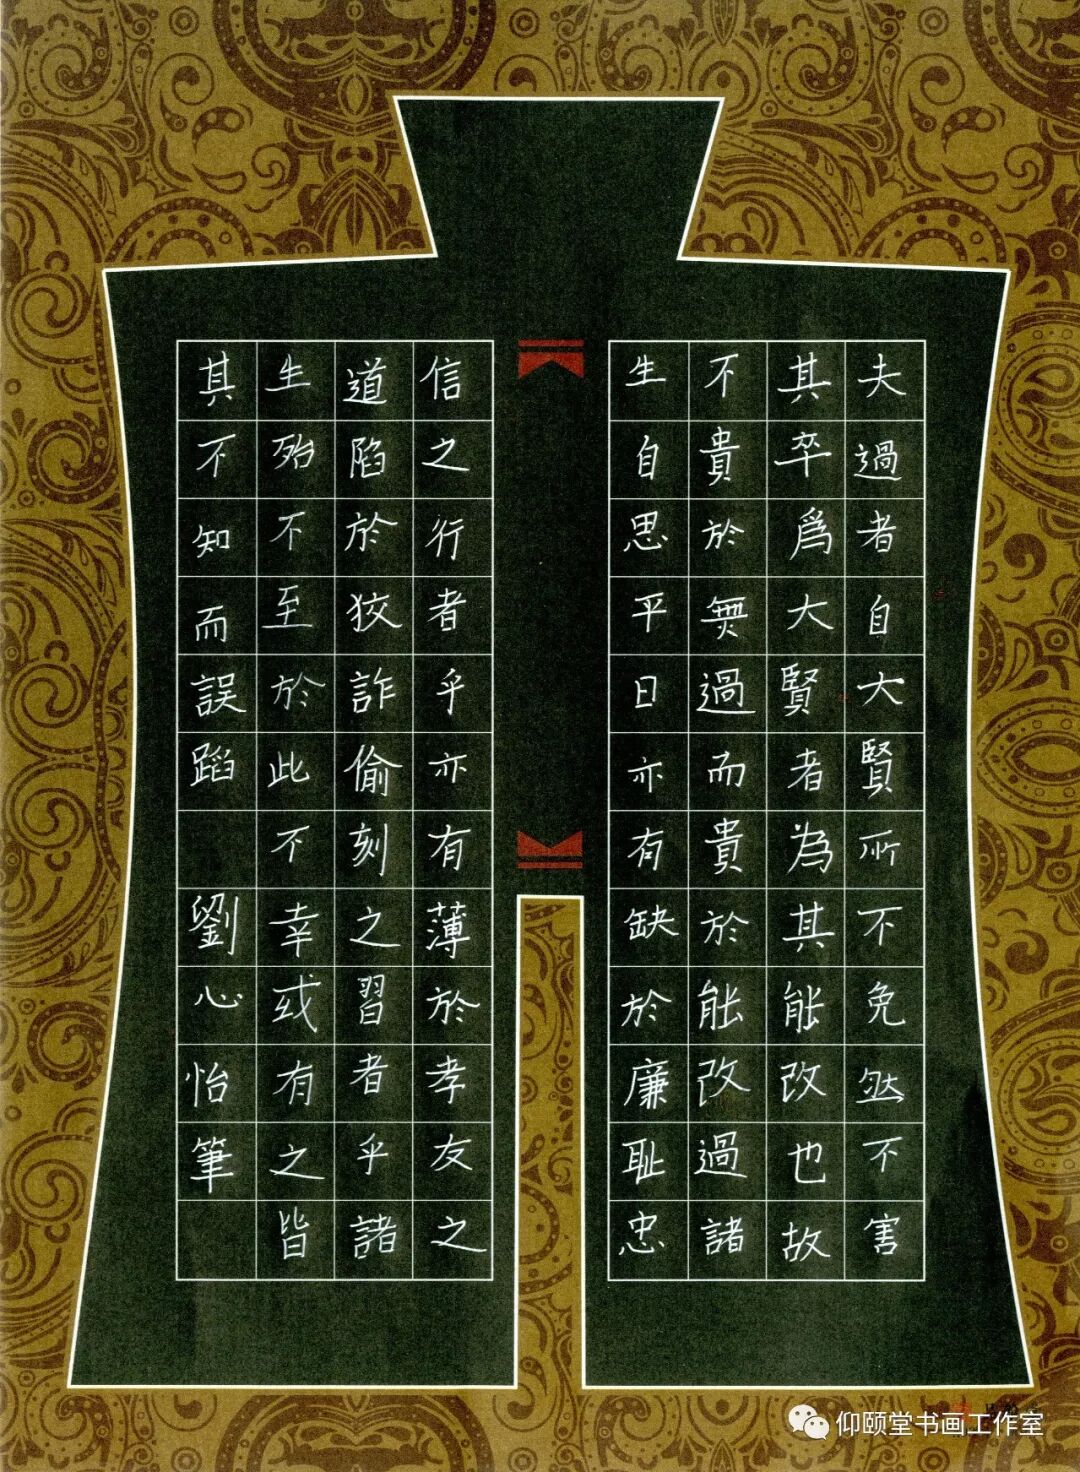 夫過者自大賢所不免然不害
其卒爲大賢者為其能改也故
不貴於無過而貴於能改過諸
生自思平日亦有缺於廉耻忠
信之行者乎亦有薄於孝友之
道陷於狡詐偷刻之習者乎諸
生殆不至於此不幸或有之皆
其不知而誤蹈
劉心怡筆
仰颐堂书画工作室